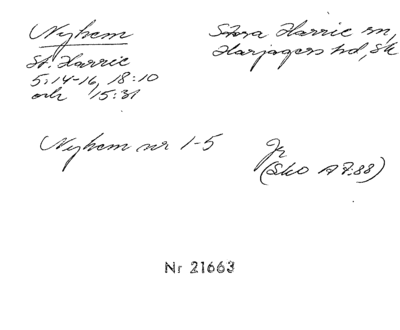 Nyhem
Stora Harrie sn,
Harjagers hd, Sk
St. Harrie
5:14-16, 18:10
och 15:31
Nyhem nr 1-5
Jr
(Sko A 7:88)
Nr 21663